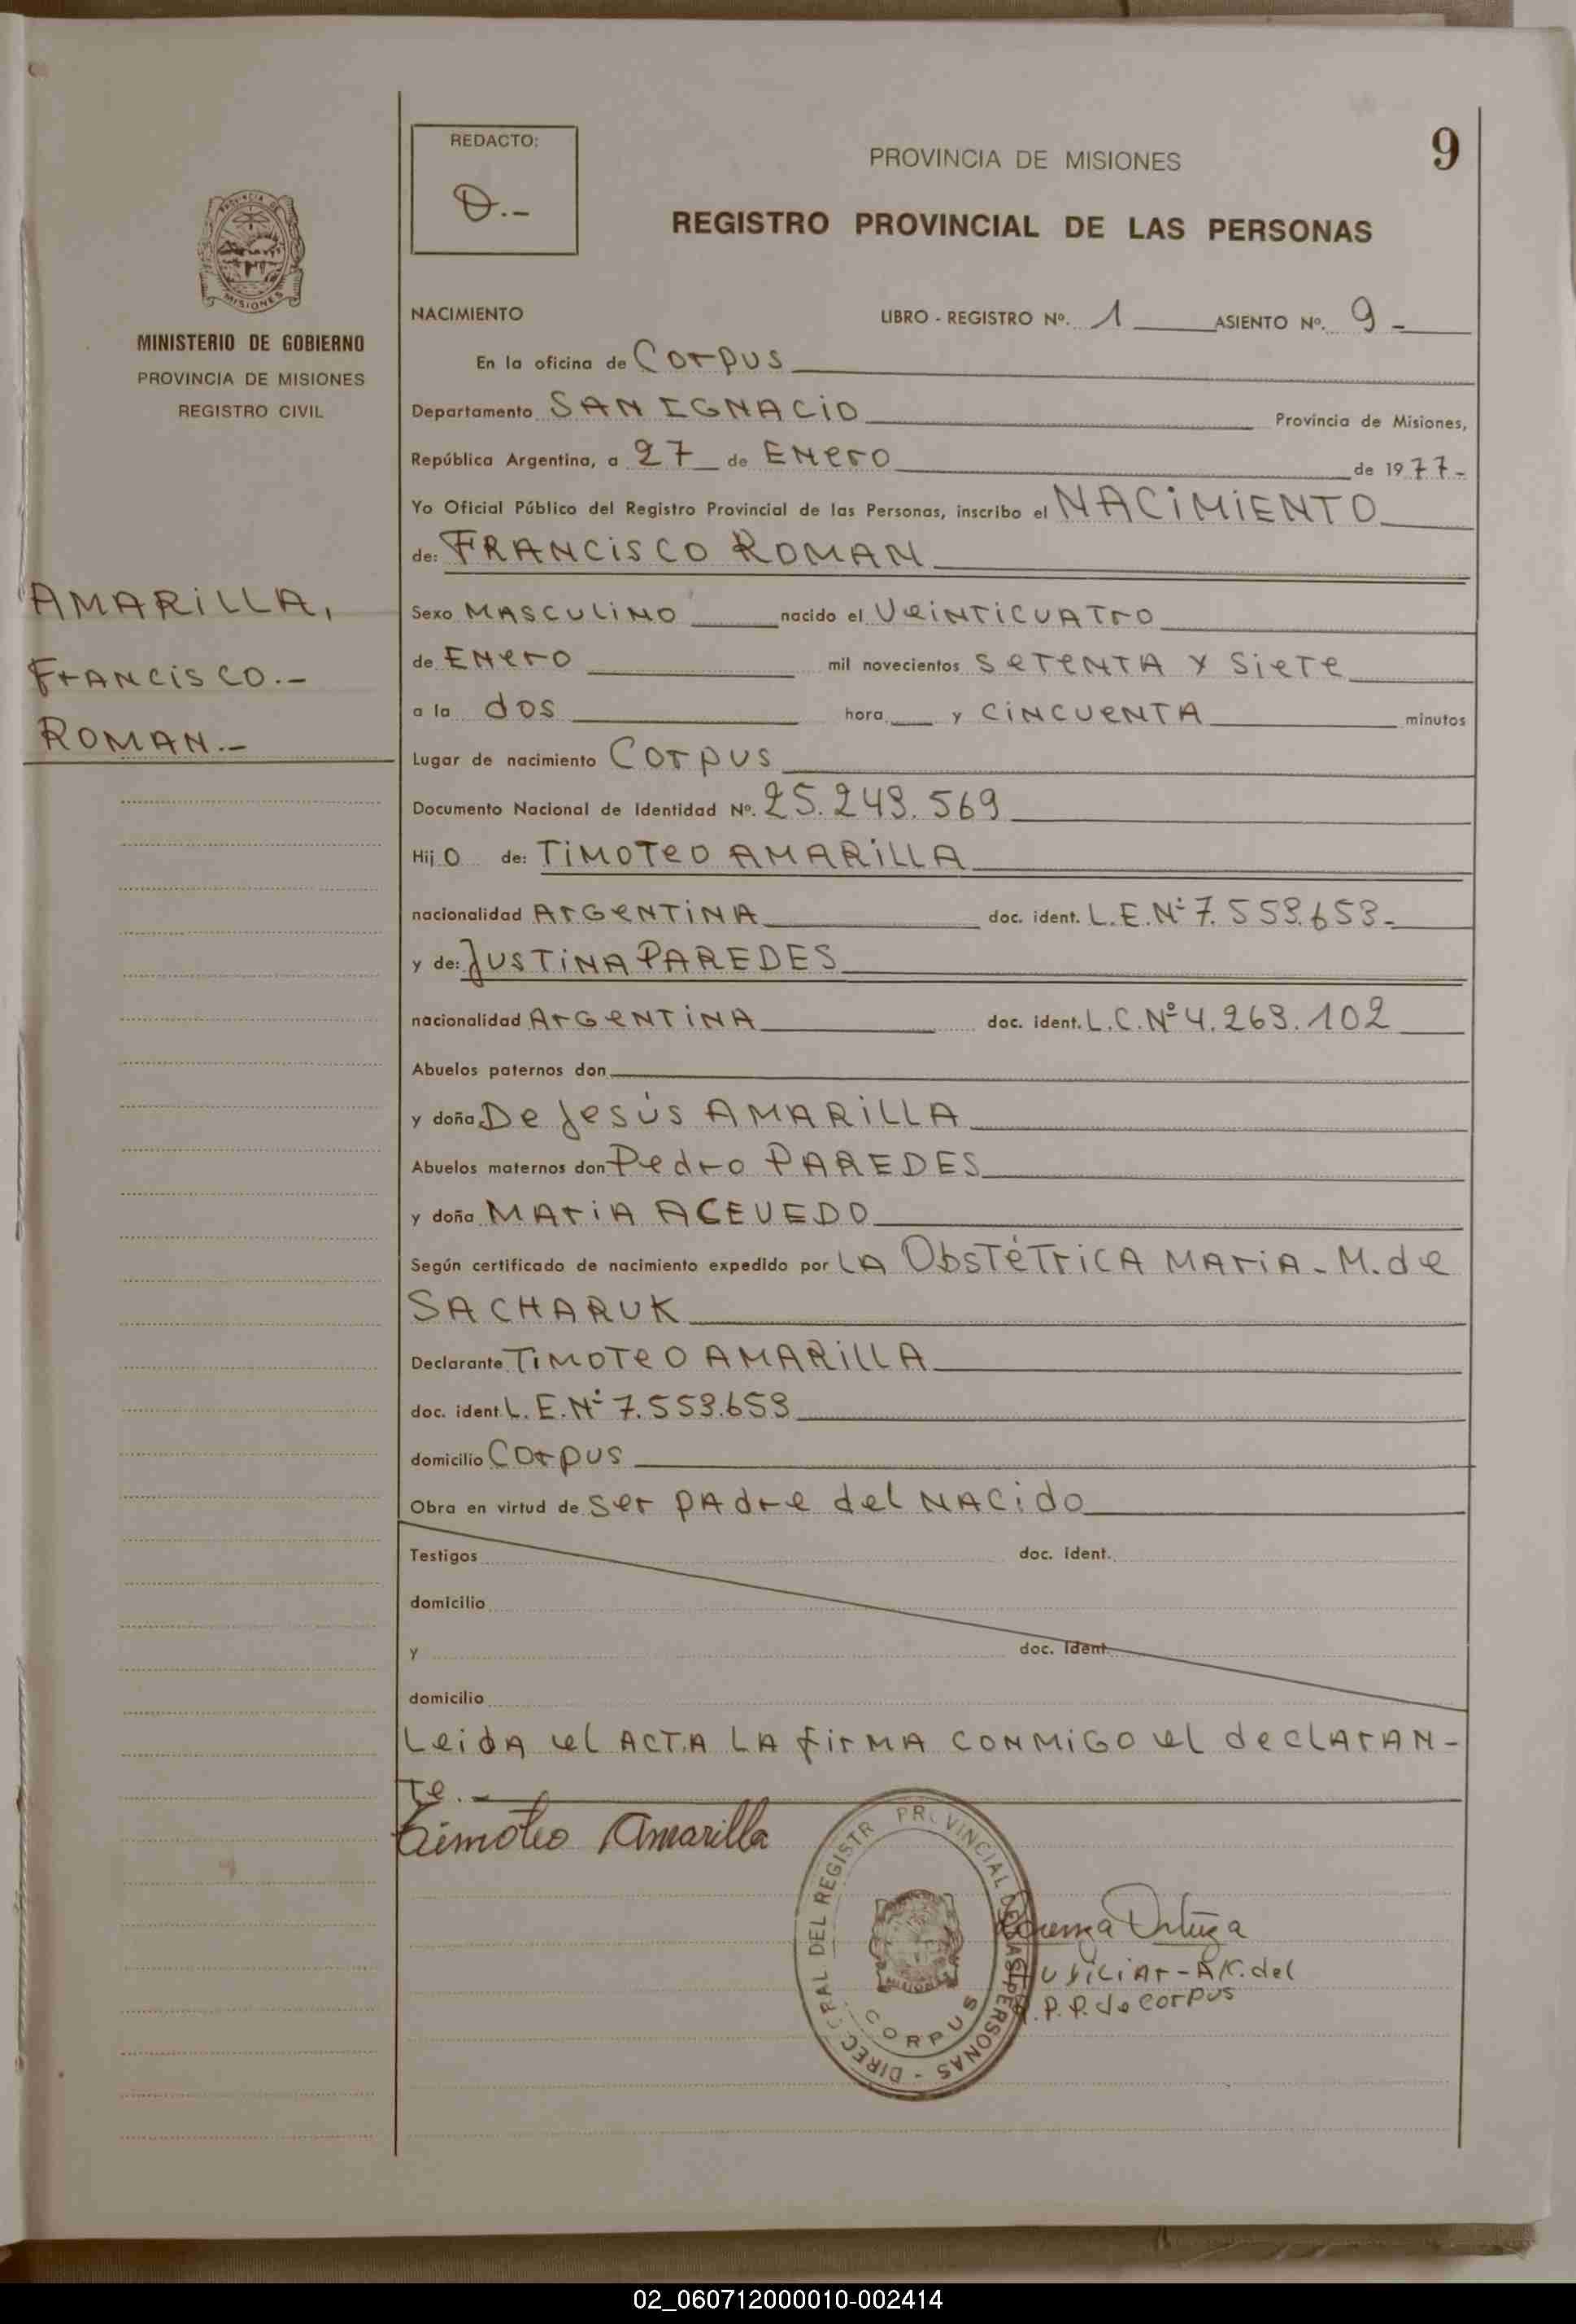 9
REDACTO:
D.-
PROVINCIA DE MISIONES
REGISTRO PROVINCIAL DE LAS PERSONAS
PROVINCIA DE
MISIONES
MINISTERIO DE GOBIERNO
PROVINCIA DE MISIONES
REGISTRO CIVIL
AMARILLA,
FRANCISCO.-
ROMAN.-
NACIMIENTO LIBRO - REGISTRO Nº. 1 ASIENTO Nº. 9-
En la oficina de Corpus
Departamento SAN IGNACIO Provincia de Misiones,
República Argentina, a 27 de Enero de 1977-
Yo Oficial Público del Registro Provincial de las Personas, inscribo el NACIMIENTO
de: FRANCISCO ROMAN
Sexo MASCULINO nacido el VeiNTiCUATro
de Enero mil novecientos SeTeNTA y Siete
a la dos hora y CiNCUeNTA minutos
Lugar de nacimiento Corpus
Documento Nacional de Identidad Nº. 25.249.569
Hijo de: TiMOTeO AMARiLLA
nacionalidad ArGeNTiNA doc. ident. L.E.Nº 7.559.659-
y de: JUSTiNA PAREDES
nacionalidad ArGeNTiNA doc. ident. L.C.Nº 4.269.102
Abuelos paternos don
y doña De Jesús AMARiLLA
Abuelos maternos don Pedro PAREDES
y doña MAriA ACEVEDO
Según certificado de nacimiento expedido por LA ObsTéTriCA MAriA - M. de
SACHARUK
Declarante TiMOTeO AMARiLLA
doc. ident L.E.Nº 7.559.659
domicilio Corpus
Obra en virtud de ser pAdre del NACido
Testigos doc. ident.
domicilio
y doc. ident.
domicilio
Leida el ACTA LA firMA CONMiGO el deCLArAN-
Te.-
Timoteo Amarilla
DIREC RAL DEL REGISTR PR VINCIAL DE LAS PERSONAS -
CORPUS
Auxiliar - A/C. del
R.P.P. de Corpus
02_060712000010-002414